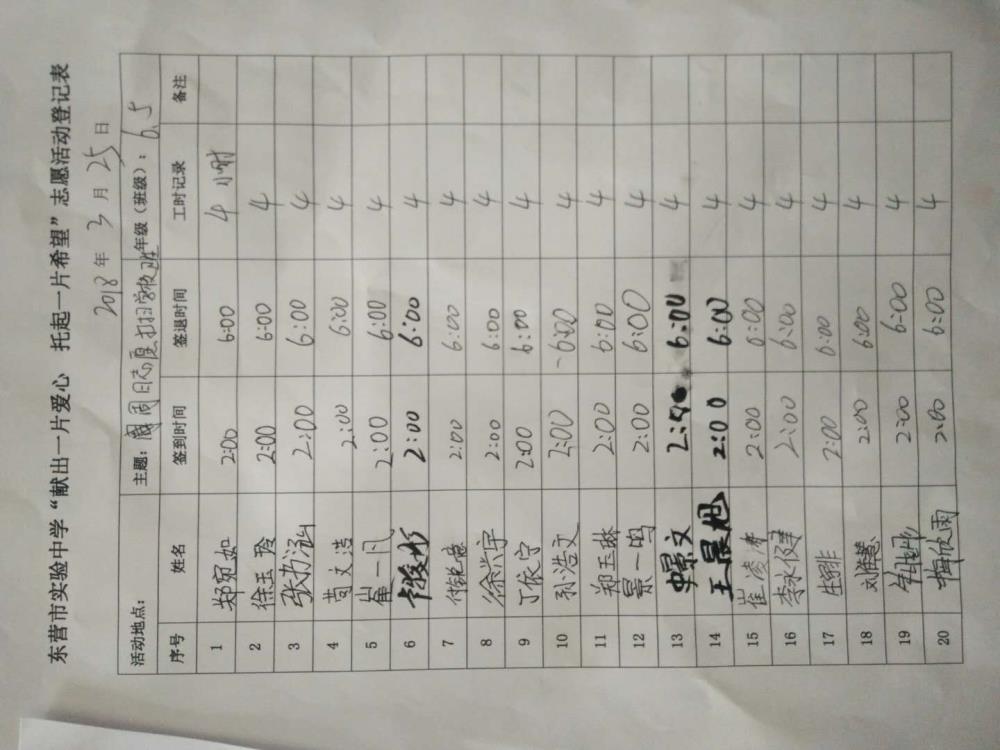 东营市实验中学“献出一片爱心 托起一片希望”志愿活动登记表
2018年3月25日
活动地点： 主题：周日志愿打扫学校 年级（班级）：6.5
序号 姓名 签到时间 签退时间 工时记录 备注
1 郑宛如 2:00 6:00 4小时
2 徐玉玲 2:00 6:00 4
3 张书涵 2:00 6:00 4
4 黄文浩 2:00 6:00 4
5 崔一凡 2:00 6:00 4
6 2:00 6:00 4
7 2:00 6:00 4
8 徐浩宇 2:00 6:00 4
9 丁依宁 2:00 6:00 4
10 孙浩文 2:00 6:00 4
11 郑玉林 2:00 6:00 4
12 景一鸣 2:00 6:00 4
13 2:00 6:00 4
14 王晨旭 2:00 6:00 4
15 崔凌峰 2:00 6:00 4
16 李永健 2:00 6:00 4
17 2:00 6:00 4
18 2:00 6:00 4
19 2:00 6:00 4
20 梅欣雨 2:00 6:00 4